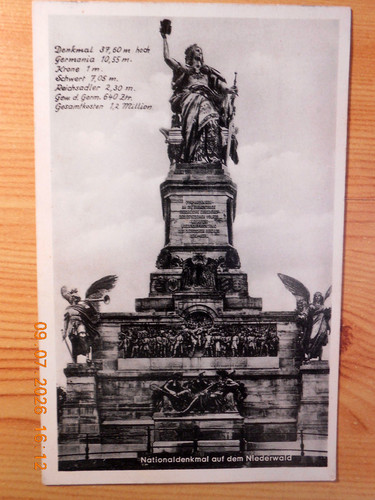 Denkmal 37,60 m hoch
Germania 10,55 m.
Krone 1 m.
Schwert 7,05 m.
Reichsadler 2,30 m.
Gew. d. Germ. 640 Ztr.
Gesamtkosten 1,2 Million
Nationaldenkmal auf dem Niederwald
09.07.2026 16:13